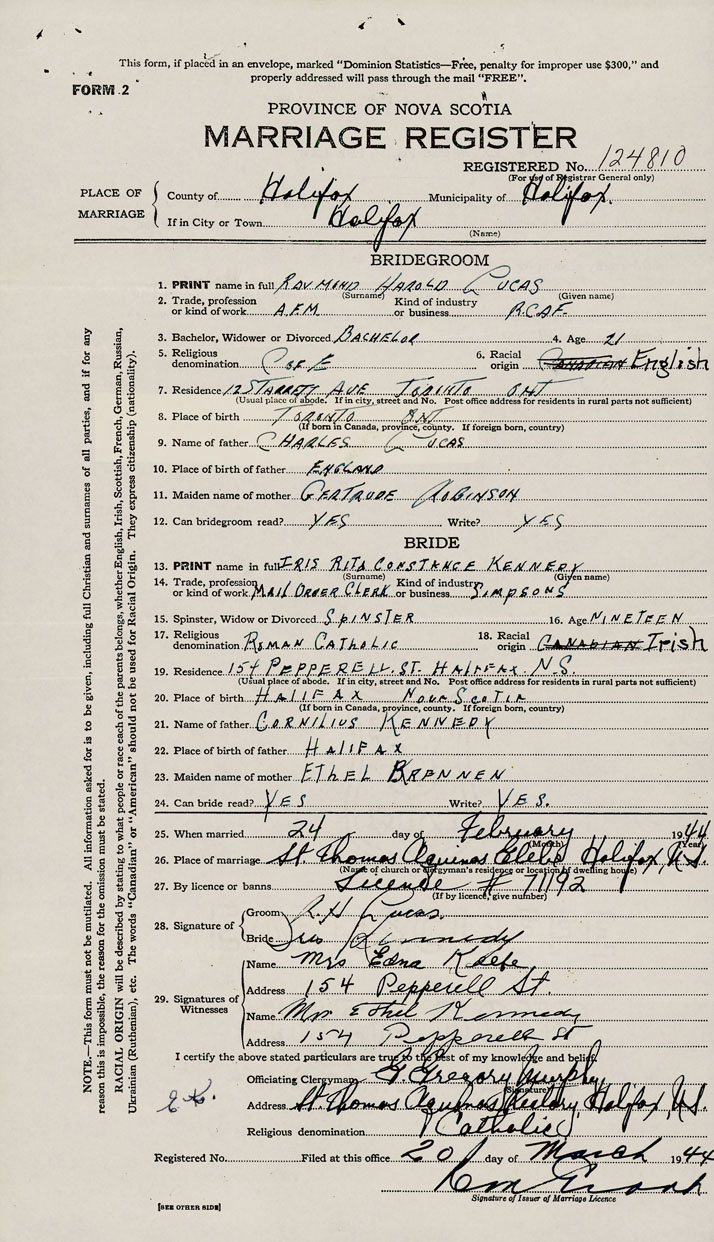 This form, if placed in an envelope, marked "Dominion Statistics—Free, penalty for improper use $300," and
properly addressed will pass through the mail "FREE".
FORM 2
PROVINCE OF NOVA SCOTIA
MARRIAGE REGISTER
REGISTERED No. 124810
(For use of Registrar General only)
PLACE OF MARRIAGE
County of Halifax Municipality of Halifax.
If in City or Town Halifax
(Name)
BRIDEGROOM
1. PRINT name in full RAYMOND HAROLD LUCAS
(Surname) (Given name)
2. Trade, profession or kind of work A.F.M. Kind of industry or business R.C.A.F.
3. Bachelor, Widower or Divorced BACHELOR 4. Age 21
5. Religious denomination C OF E 6. Racial origin CANADIAN English
7. Residence 12 STARRETT AVE TORONTO ONT
(Usual place of abode. If in city, street and No. Post office address for residents in rural parts not sufficient)
8. Place of birth TORONTO ONT
(If born in Canada, province, county. If foreign born, country)
9. Name of father CHARLES LUCAS
10. Place of birth of father ENGLAND
11. Maiden name of mother GERTRUDE ROBINSON
12. Can bridegroom read? YES Write? YES
BRIDE
13. PRINT name in full IRIS RITA CONSTANCE KENNEDY
(Surname) (Given name)
14. Trade, profession or kind of work MAIL ORDER CLERK Kind of industry or business SIMPSONS
15. Spinster, Widow or Divorced SPINSTER 16. Age NINETEEN
17. Religious denomination ROMAN CATHOLIC 18. Racial origin CANADIAN Irish
19. Residence 154 PEPPERELL ST. HALIFAX N.S
(Usual place of abode. If in city, street and No. Post office address for residents in rural parts not sufficient)
20. Place of birth HALIFAX NOVA SCOTIA
(If born in Canada, province, county. If foreign born, country)
21. Name of father CORNILIUS KENNEDY
22. Place of birth of father HALIFAX
23. Maiden name of mother ETHEL BRENNEN
24. Can bride read? YES Write? YES.
25. When married 24 day of February 1944
(Month) (Year)
26. Place of marriage St. Thomas Aquinas Glebe Halifax, N.S.
(Name of church or clergyman's residence or location of dwelling house)
27. By licence or banns License # 71192
(If by licence, give number)
28. Signature of
Groom R. H. Lucas.
Bride Iris Kennedy
29. Signatures of Witnesses
Name Mrs Edna Keefe
Address 154 Pepperell St.
Name Mrs Ethel Kennedy
Address 154 Pepperell St
I certify the above stated particulars are true to the best of my knowledge and belief.
Officiating Clergyman G. Gregory Murphy
(Signature)
E.K.
Address St. Thomas Aquinas Rectory, Halifax, N.S.
Religious denomination Catholic
Registered No. Filed at this office 20 day of March 1944
Signature of Issuer of Marriage Licence
[SEE OTHER SIDE]
NOTE.—This form must not be mutilated. All information asked for is to be given, including full Christian and surnames of all parties, and if for any
reason this is impossible, the reason for the omission must be stated.
RACIAL ORIGIN will be described by stating to what people or race each of the parents belongs, whether English, Irish, Scottish, French, German, Russian,
Ukrainian (Ruthenian), etc. The words "Canadian" or "American" should not be used for Racial Origin. They express citizenship (nationality).